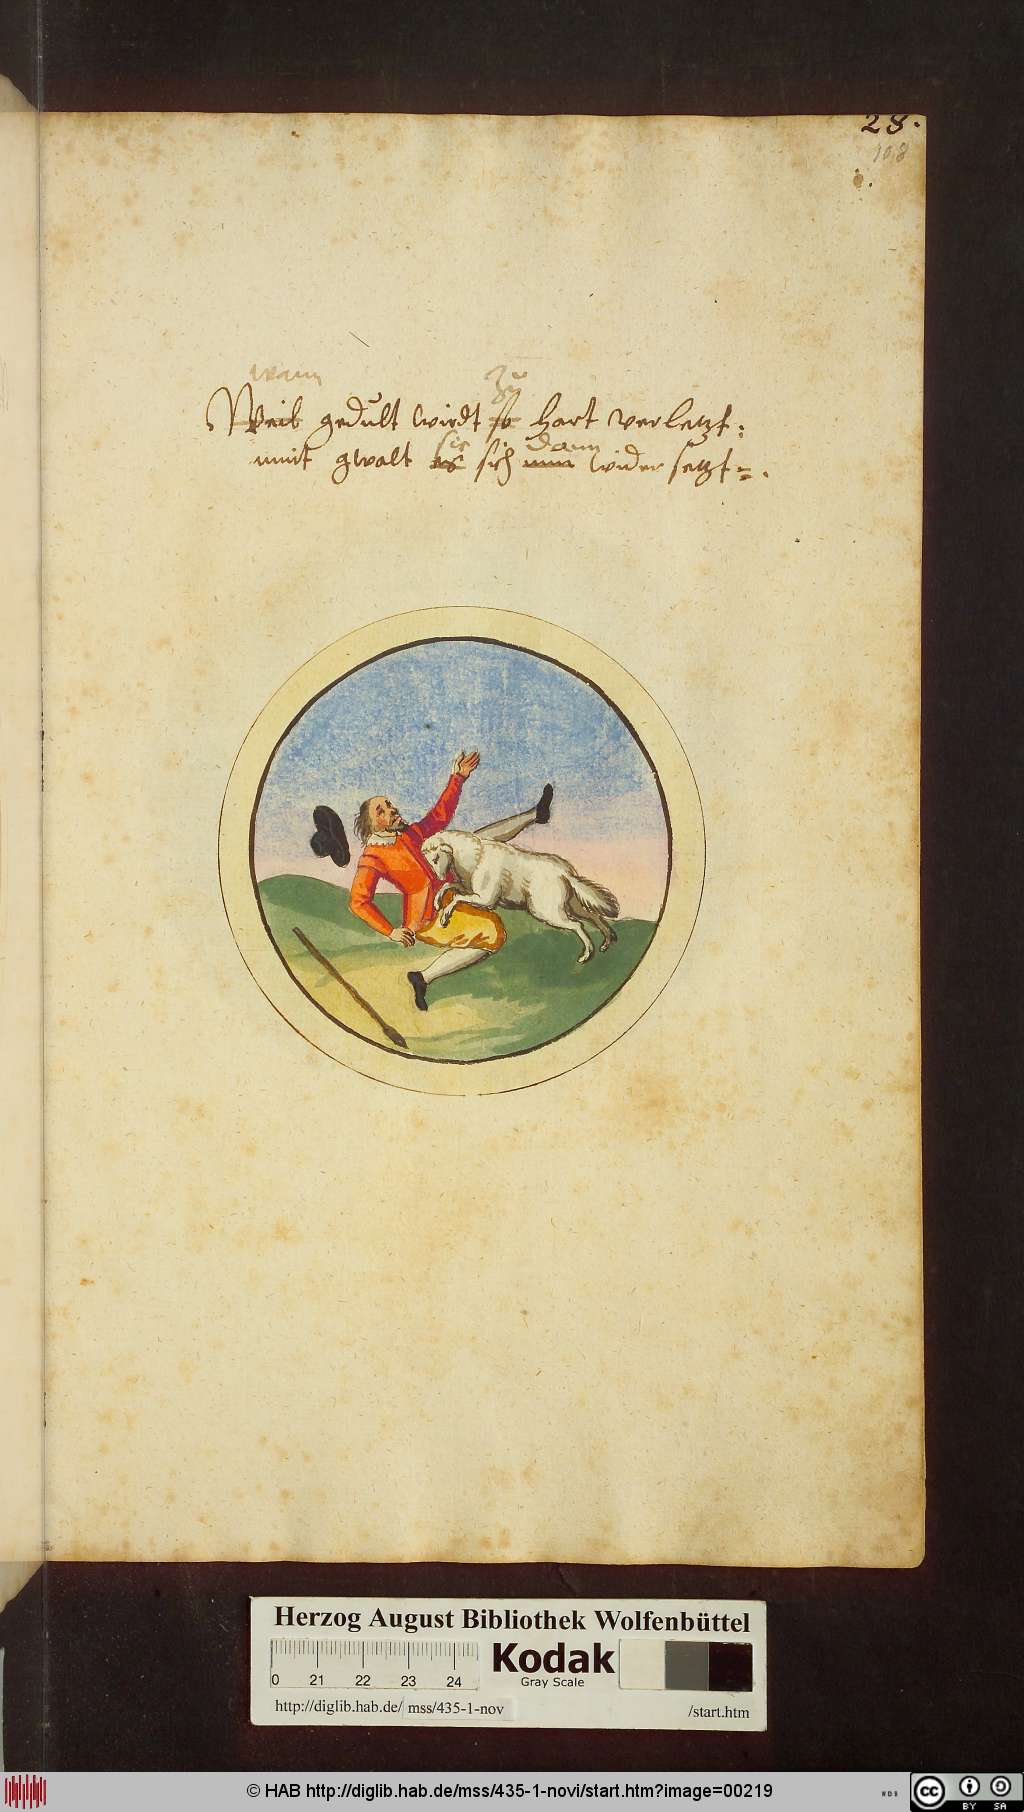 28.
108
wann
zu
Weil gedult wirdt so hart verletzt:
sie dann
mit gwalt es sich nun wider setzt=.
Herzog August Bibliothek Wolfenbüttel
0 21 22 23 24
Kodak
Gray Scale
http://diglib.hab.de/ mss/435-1-nov /start.htm
© HAB http://diglib.hab.de/mss/435-1-novi/start.htm?image=00219
WDB
cc BY SA